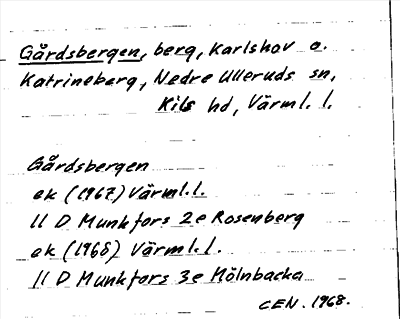 Gårdsbergen, berg, Karlshov o.
Katrineberg, Nedre Ulleruds sn,
Kils hd, Värml. l.
Gårdsbergen
ek (1967) Värml.l.
11 D Munkfors 2e Rosenberg
ek (1968) Värml.l.
11 D Munkfors 3e Mölnbacka
CEN. 1968.